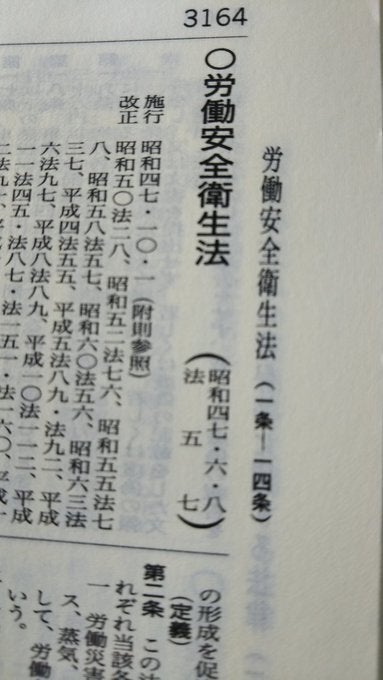 3164
労働安全衛生法(一条―一四条)
〇労働安全衛生法
(昭和四七・六・八
法五七)
施行 昭和四七・一〇・一(附則参照)
改正 昭和五〇法二八、昭和五二法七六、昭和五五法七
八、昭和五八法五七、昭和六〇法五六、昭和六三法
三七、平成四法五五、平成五法八九・法九二、平成
六法九七、平成八法八九、平成一〇法一一二、平成
一一法四五・法八七・法一五一・法一六〇、平成一
二法九一、平
の形成を促
(定義)
第二条 この法
れぞれ当該各
一 労働災害
ス、蒸気、
して、労働
いう。